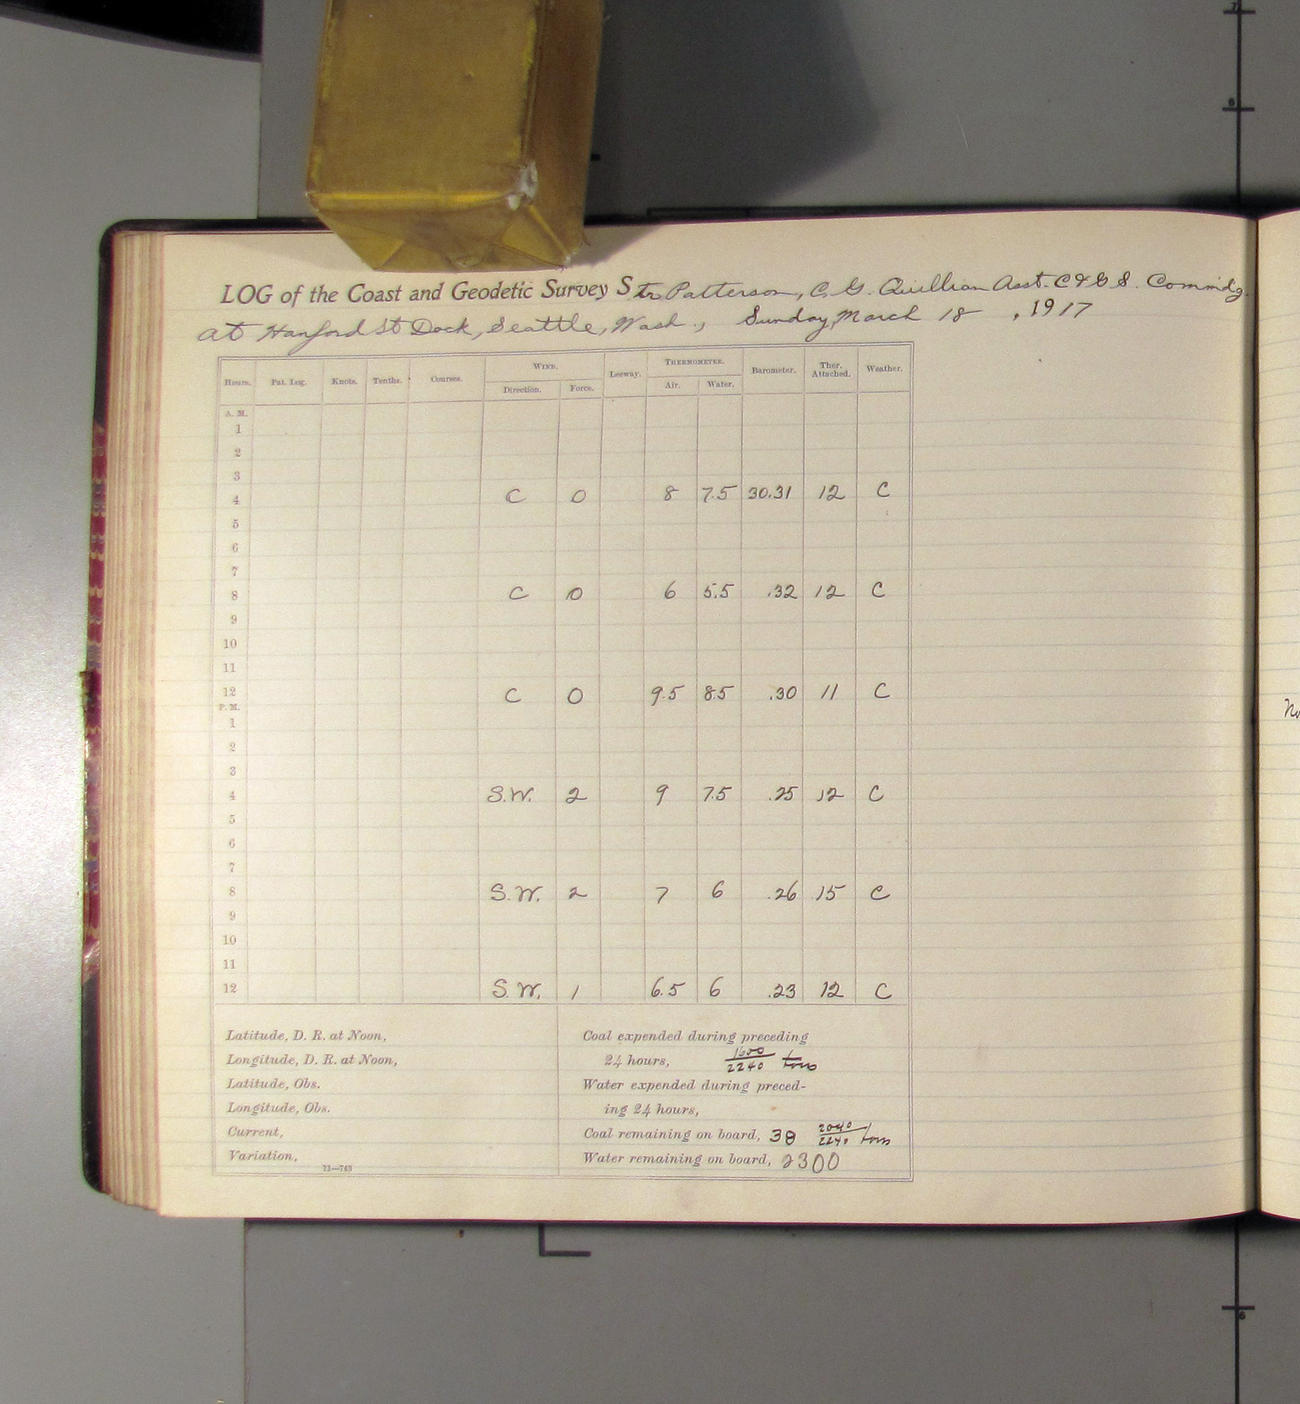 LOG of the Coast and Geodetic Survey Str Patterson, C. G. Quillian Asst. C & G S. Commdg.
at Hanford St Dock, Seattle, Wash., Sunday, March 18, 1917
Hours. Pat. Log. Knots. Tenths. Courses. WIND. Direction. Force. Leeway. THERMOMETER. Air. Water. Barometer. Ther. Attached. Weather.
A. M.
1
2
3
4 C 0 8 7.5 30.31 12 C
5
6
7
8 C 0 6 5.5 .32 12 C
9
10
11
12 C 0 9.5 8.5 .30 11 C
P. M.
1
2
3
4 S.W. 2 9 7.5 .25 12 C
5
6
7
8 S.W. 2 7 6 .26 15 C
9
10
11
12 S.W. 1 6.5 6 .23 12 C
Latitude, D. R. at Noon,
Longitude, D. R. at Noon,
Latitude, Obs.
Longitude, Obs.
Current,
Variation,
11—743
Coal expended during preceding
24 hours, 1600/2240 tons
Water expended during preced-
ing 24 hours,
Coal remaining on board, 38 2040/2240 tons
Water remaining on board, 2300